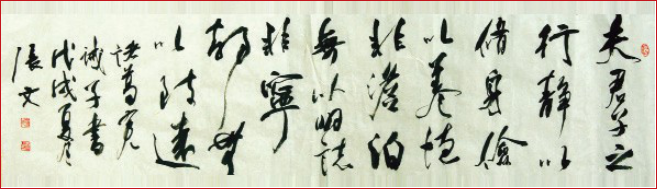 夫君子之
行静以
修身儉
以養德
非澹泊
無以明誌
非寧
静無
以致遠
諸葛亮
誡子書
戊戌夏月
張文